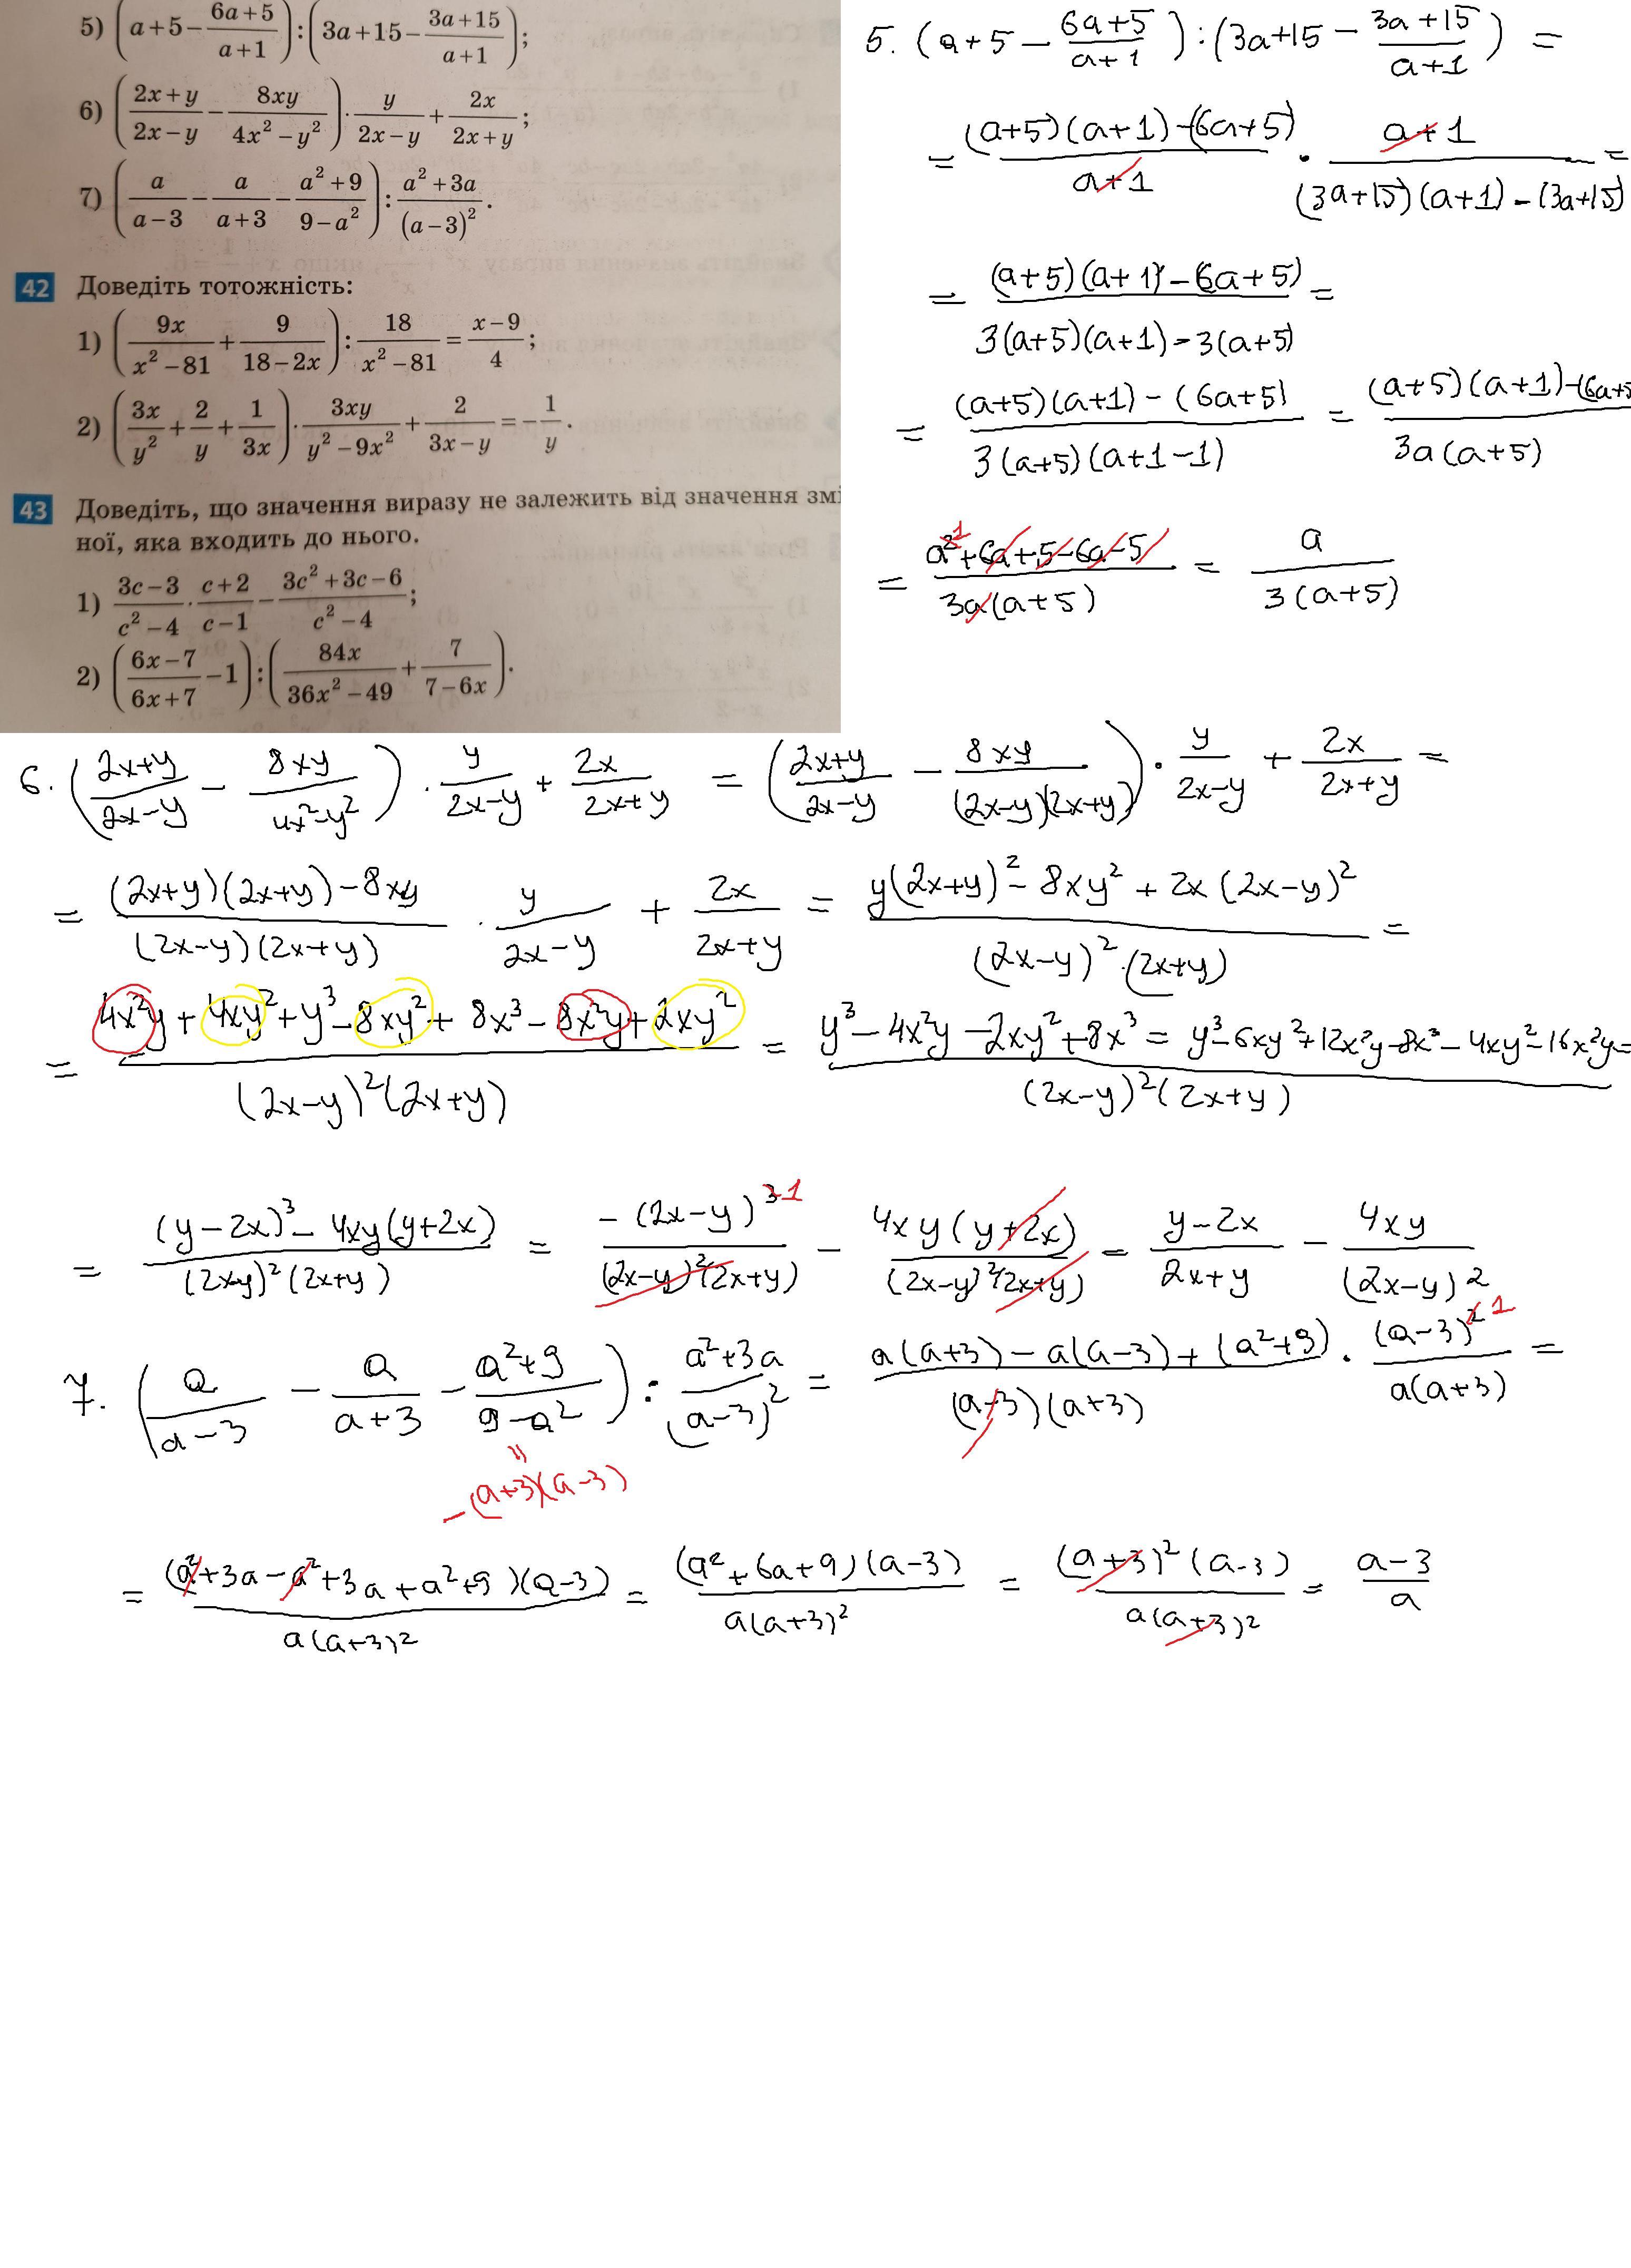 5) (a+5−(6a+5)/(a+1)):(3a+15−(3a+15)/(a+1));
6) ((2x+y)/(2x−y)−8xy/(4x²−y²))·y/(2x−y)+2x/(2x+y);
7) (a/(a−3)−a/(a+3)−(a²+9)/(9−a²)):(a²+3a)/(a−3)².
42 Доведіть тотожність:
1) (9x/(x²−81)+9/(18−2x)):18/(x²−81)=(x−9)/4;
2) (3x/y²+2/y+1/3x)·3xy/(y²−9x²)+2/(3x−y)=−1/y.
43 Доведіть, що значення виразу не залежить від значення змі
ної, яка входить до нього.
1) (3c−3)/(c²−4)·(c+2)/(c−1)−(3c²+3c−6)/(c²−4);
2) ((6x−7)/(6x+7)−1):(84x/(36x²−49)+7/(7−6x)).
5. (a+5−(6a+5)/(a+1)):(3a+15−(3a+15)/(a+1))=
=((a+5)(a+1)−(6a+5))/(a+1)·(a+1)/((3a+15)(a+1)−(3a+15))=
=((a+5)(a+1)−(6a+5))/(3(a+5)(a+1)−3(a+5))=
=((a+5)(a+1)−(6a+5))/(3(a+5)(a+1−1))=((a+5)(a+1)−(6a+5)/(3a(a+5))
=(a²¹+6a+5−6a−5)/(3a(a+5))=a/(3(a+5))
6. ((2x+y)/(2x−y)−8xy/(4x²−y²))·y/(2x−y)+2x/(2x+y)=((2x+y)/(2x−y)−8xy/((2x−y)(2x+y)))·y/(2x−y)+2x/(2x+y)=
=((2x+y)(2x+y)−8xy)/((2x−y)(2x+y))·y/(2x−y)+2x/(2x+y)=(y(2x+y)²−8xy²+2x(2x−y)²)/((2x−y)²·(2x+y))=
=(4x²y+4xy²+y³−8xy²+8x³−8x²y+2xy²)/((2x−y)²(2x+y))=(y³−4x²y−2xy²+8x³=y³−6xy²+12x²y−8x³−4xy²−16x²y)/((2x−y)²(2x+y))=
=((y−2x)³−4xy(y+2x))/((2x-y)²(2x+y))=−(2x−y)³¹/((2x−y)²(2x+y))−4xy(y+2x)/((2x−y)²(2x+y))=(y−2x)/(2x+y)−4xy/(2x−y)²
7. (a/(a−3)−a/(a+3)−(a²+9)/(9−a²)):(a²+3a)/(a−3)²=(a(a+3)−a(a−3)+(a²+9))/((a−3)(a+3))·(a−3)²¹/(a(a+3))=
=
−(a+3)(a−3)
=(a²+3a−a²+3a+a²+9)(a−3)/(a(a+3)²)=(a²+6a+9)(a−3)/(a(a+3)²)=(a+3)²(a−3)/(a(a+3)²)=(a−3)/a